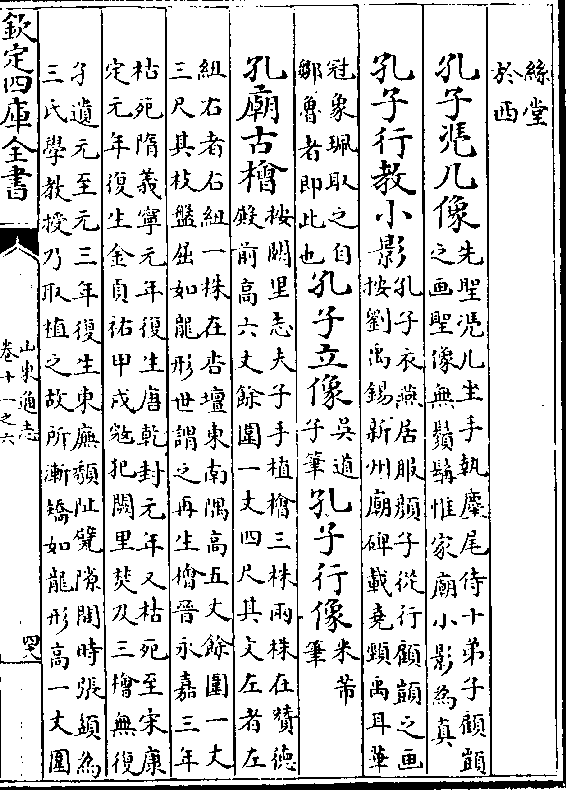 絲堂
於西
孔子凴几像
先聖凴几坐手執麈尾侍十弟子顧顗
之画聖像無鬚髯惟家廟小影為真
孔子行教小影
孔子衣燕居服顔子從行顧顗之画
按劉禹錫新州廟碑載堯頸禹耳華
冠象珮取之自
鄒魯者即此也
孔子立像
吳道
子筆
孔子行像
米芾
筆
孔廟古檜
按闕里志夫子手植檜三株兩株在賛徳
殿前高六丈餘圍一丈四尺其文左者左
紐右者右紐一株在杏壇東南隅高五丈餘圍一丈
三尺其枝盤屈如龍形世謂之再生檜晉永嘉三年
枯死隋義寧元年復生唐乾封元年又枯死至宋康
定元年復生金貞祐甲戌冦犯闕里焚及三檜無復
孑遺元至元三年復生東廡頽阯甓隙間時張頟為
三氏學教授乃取植之故所漸矯如龍形高一丈圍
欽定四庫全書
山東通志
卷十一之六